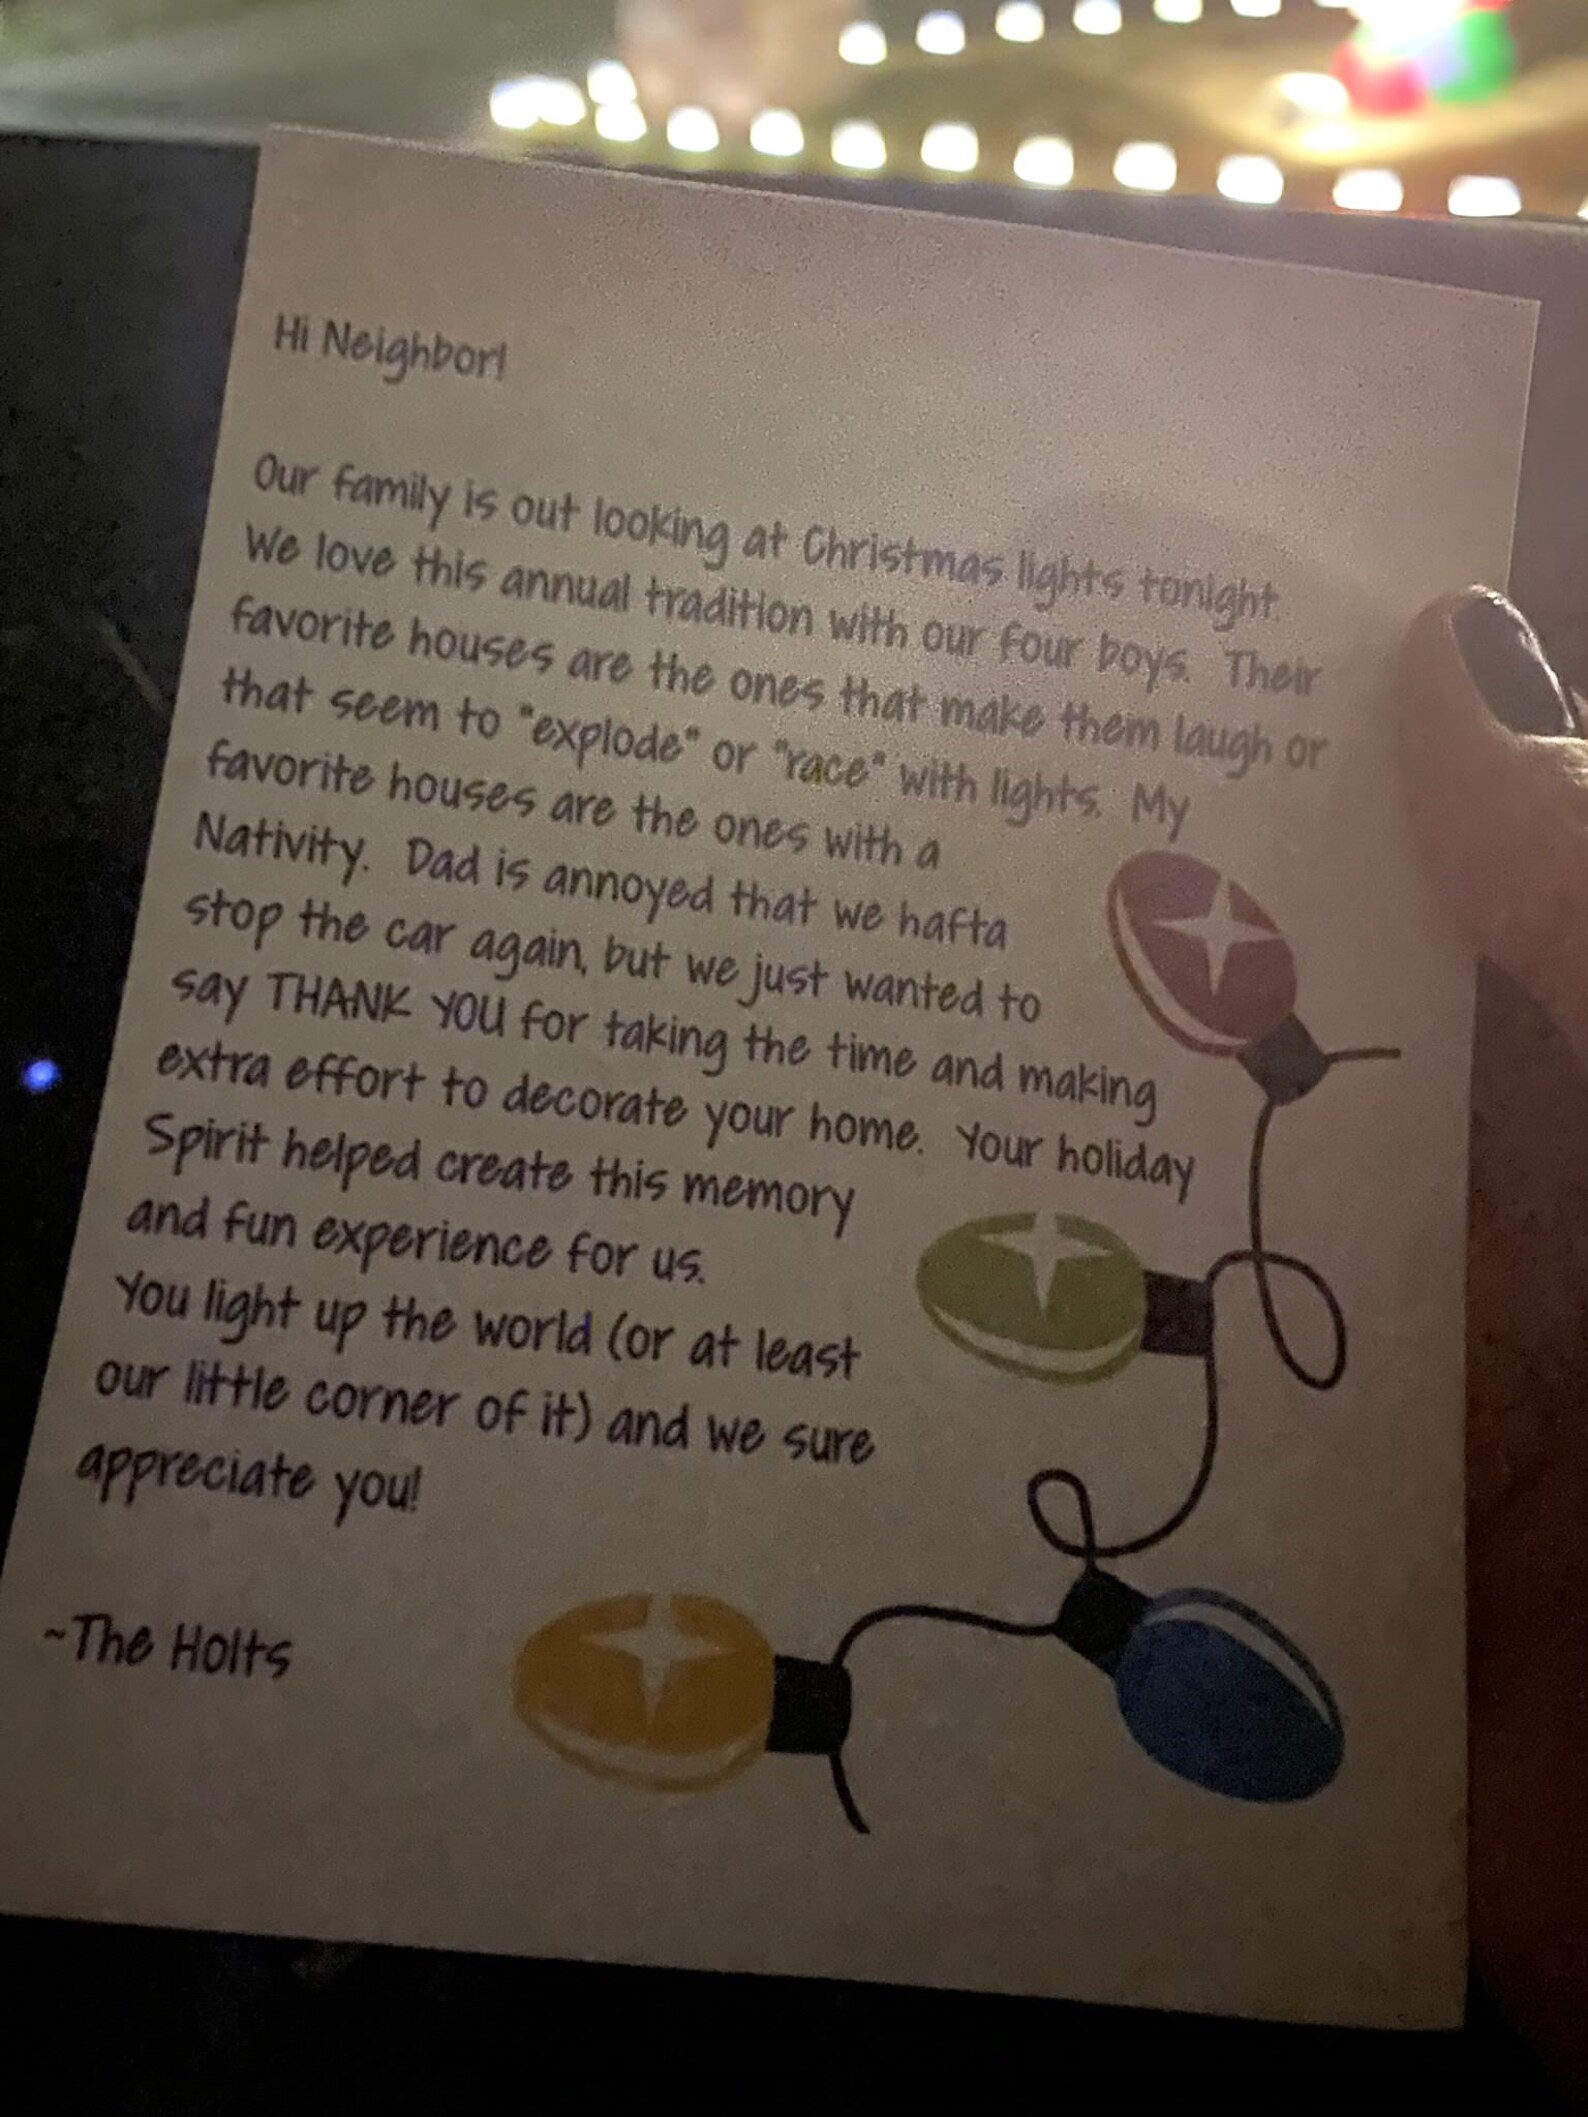 Hi Neighbor!
Our family is out looking at Christmas lights tonight.
We love this annual tradition with our four boys. Their
favorite houses are the ones that make them laugh or
that seem to "explode" or "race" with lights. My
favorite houses are the ones with a
Nativity. Dad is annoyed that we hafta
stop the car again, but we just wanted to
say THANK YOU for taking the time and making
extra effort to decorate your home. Your holiday
Spirit helped create this memory
and fun experience for us.
You light up the world (or at least
our little corner of it) and we sure
appreciate you!
~The Holts